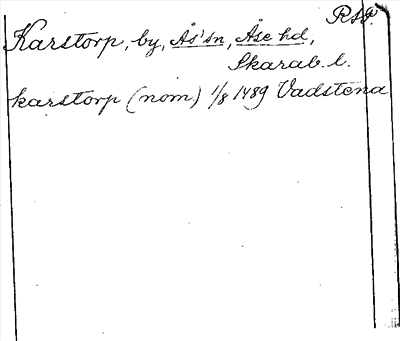 RSg.
Karstorp, by, Ås sn, Åse hd,
Skarab. l.
karstorp (nom) 1/8 1489 Vadstena